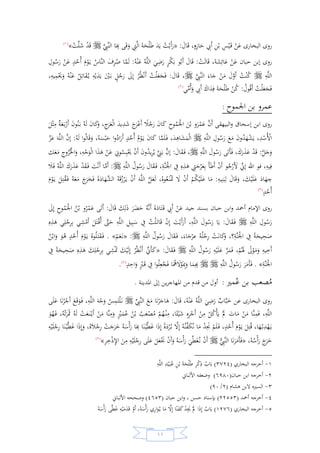 روى البخارى عَنْ قَيْسِ بْنِ أَبِي حَازِمٍ، قَالَ: «رَأَيْتُ يَدَ طَلْحَةَ الَّتِي وَقَى بِهَا النَّبِيَّ ﷺ قَدْ شَلَّتْ»(١)
روى ابن حبان عَنْ عَائِشَةَ، قَالَتْ: قَالَ أَبُو بَكْرٍ رَضِيَ اللَّهُ عَنْهُ: لَمَّا صُرِفَ النَّاسُ يَوْمَ أُحُدٍ عَنْ رَسُولِ
اللَّهِ ﷺ كُنْتُ أَوَّلَ مَنْ جَاءَ النَّبِيَّ ﷺ، قَالَ: فَجَعَلْتُ أَنْظُرُ إِلَى رَجُلٍ بَيْنَ يَدَيْهِ يُقَاتِلُ عَنْهُ وَيَحْمِيهِ،
فَجَعَلْتُ أَقُولُ: كُنْ طَلْحَةَ فِدَاكَ أَبِي وَأُمِّي(٢)
عمرو بن الجموح :
روى ابن إسحاق والبيهقى أَنَّ عَمْرَو بْنَ الْجَمُوحِ كَانَ رَجُلًا أَعْرَجَ شَدِيدَ الْعَرَجِ، وَكَانَ لَهُ بَنُونَ أَرْبَعَةٌ مِثْلُ
الْأُسْدِ، يَشْهَدُونَ مَعَ رَسُولِ اللَّهِ ﷺ الْمَشَاهِدَ، فَلَمَّا كَانَ يَوْمُ أُحُدٍ أَرَادُوا حَبْسَهُ، وَقَالُوا لَهُ: إِنَّ اللَّهَ عَزَّ
وَجَلَّ: قَدْ عَذَرَكَ، فَأَتَى رَسُولَ اللَّهِ ﷺ، فَقَالَ: إِنَّ بَنِيَّ يُرِيدُونَ أَنْ يَحْبِسُونِي عَنْ هَذَا الْوَجْهِ، وَالْخُرُوجِ مَعَكَ
فِيهِ، فو الله إنِّي لَأَرْجُو أَنْ أَطَأَ بِعَرْجَتِي هَذِهِ فِي الْجَنَّةِ، فَقَالَ رَسُولُ اللَّهِ ﷺ: أَمَّا أَنْتَ فَقَدْ عَذَرَكَ اللَّهُ فَلَا
جِهَادَ عَلَيْكَ، وَقَالَ لِبَنِيهِ: مَا عَلَيْكُمْ أَنْ لَا تَمْنَعُوهُ، لَعَلَّ اللَّهَ أَنْ يَرْزُقَهُ الشَّهَادَةَ فَخَرَجَ مَعَهُ فَقُتِلَ يَوْمَ
أُحُدٍ(٣)
روى الإمام أحمد وابن حبان بسند جيد عَنْ أَبِي قَتَادَةَ أَنَّهُ حَضَرَ ذَلِكَ قَالَ: أَتَى عَمْرُو بْنُ الْجَمُوحِ إِلَى
رَسُولِ اللَّهِ ﷺ فَقَالَ: يَا رَسُولَ اللَّهِ، أَرَأَيْتَ إِنْ قَاتَلْتُ فِي سَبِيلِ اللَّهِ حَتَّى أُقْتَلَ أَمْشِي بِرِجْلِي هَذِهِ
صَحِيحَةً فِي الْجَنَّةِ؟، وَكَانَتْ رِجْلُهُ عَرْجَاءَ، فَقَالَ رَسُولُ اللَّهِ ﷺ: «نَعَمْ» . فَقُتِلُوا يَوْمَ أُحُدٍ هُوَ وَابْنُ
أَخِيهِ وَمَوْلًى لَهُمْ، فَمَرَّ عَلَيْهِ رَسُولُ اللَّهِ ﷺ فَقَالَ: «كَأَنِّي أَنْظُرُ إِلَيْكَ تَمْشِي بِرِجْلِكَ هَذِهِ صَحِيحَةً فِي
الْجَنَّةِ» . فَأَمَرَ رَسُولُ اللَّهِ ﷺ بِهِمَا وَبِمَوْلَاهُمَا فَجُعِلُوا فِي قَبْرٍ وَاحِدٍ(٤).
مُصعب بن عُمير : أول من قدم من المهاجرين إلى المدينة .
روى البخارى عن خَبَّابٍ رَضِيَ اللَّهُ عَنْهُ، قَالَ: هَاجَرْنَا مَعَ النَّبِيِّ ﷺ نَلْتَمِسُ وَجْهَ اللَّهِ، فَوَقَعَ أَجْرُنَا عَلَى
اللَّهِ، فَمِنَّا مَنْ مَاتَ لَمْ يَأْكُلْ مِنْ أَجْرِهِ شَيْئًا، مِنْهُمْ مُصْعَبُ بْنُ عُمَيْرٍ وَمِنَّا مَنْ أَيْنَعَتْ لَهُ ثَمَرَتُهُ، فَهُوَ
يَهْدِبُهَا، قُتِلَ يَوْمَ أُحُدٍ، فَلَمْ نَجِدْ مَا نُكَفِّنُهُ إِلَّا بُرْدَةً إِذَا غَطَّيْنَا بِهَا رَأْسَهُ خَرَجَتْ رِجْلَاهُ، وَإِذَا غَطَّيْنَا رِجْلَيْهِ
خَرَجَ رَأْسُهُ، «فَأَمَرَنَا النَّبِيُّ ﷺ أَنْ نُغَطِّيَ رَأْسَهُ وَأَنْ نَجْعَلَ عَلَى رِجْلَيْهِ مِنَ الإِذْخِرِ»(٥)
١- أخرجه البخارى (٣٧٢٤) بَابُ ذِكْرِ طَلْحَةَ بْنِ عُبَيْدِ اللَّهِ
٢- أخرجه ابن حبان(٦٩٨٠) وضعفه الألبانى
٣- السيرة لابن هشام (٢/ ٩٠)
٤- أخرجه أحمد (٢٢٥٥٣) بإسناد حسن ، وابن حبان (٤٦٥٣) وصححه الألبانى
٥- أخرجه البخارى (١٢٧٦) بَابُ إِذَا لَمْ يَجِدْ كَفَنًا إِلَّا مَا يُوَارِي رَأْسَهُ، أَوْ قَدَمَيْهِ غَطَّى رَأْسَهُ